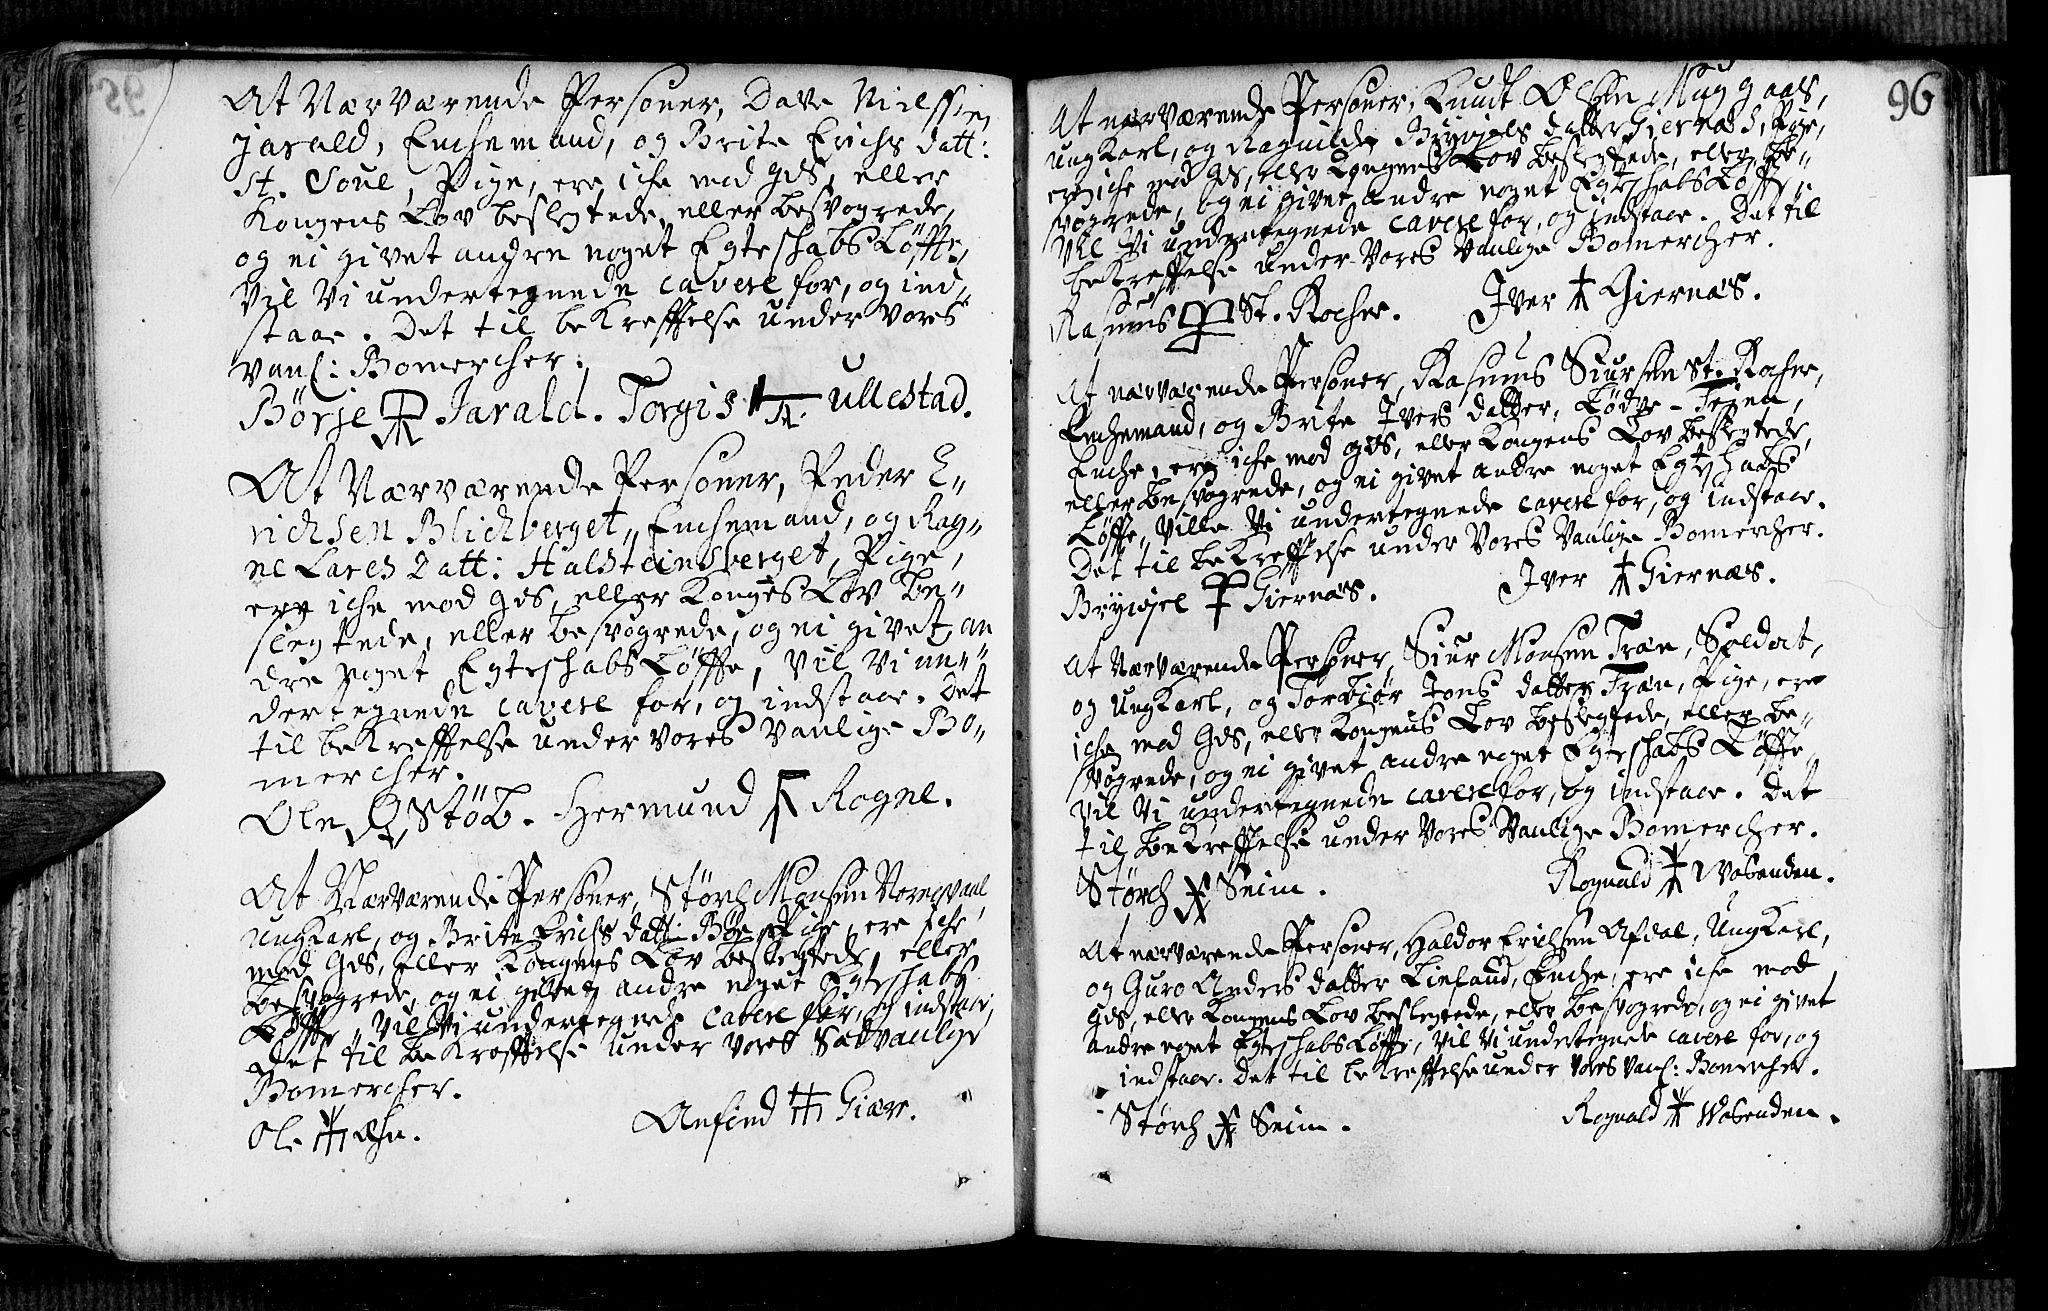 At Nærværende Persohner, Dave Nielssen
Jarald, Enchemand, og Brite Erichs datt:
St. Soul, Pige, ere iche mod Gds, eller
Kongens Lov beslegtede, eller besvogrede,
og ei givet andre noget EgteschabsLøffte,
Vil Vi undertegnede cavere for, og ind-
staae. Det til beKreffelse under Vores
vanl: Bomercher.
Børje Jarald. Torgis Ullestad.
At Nærværende Persohner, Peder E-
richsen Blichberget, Enchemand, og Rag-
ne Lares Datt: Halsteinsberget, Pige,
ere iche mod Gds, eller Konges Lov be-
slegtede, eller besvogrede, og ei givet an
dre noget Egteschabs Løffte, Vil Vi un-
dertegnede cavere for, og indstaae. Det
til beKreffelse under Vores Vanlige Bo-
mercher.
Ole Støb. Hermund Rogne.
At Nærværende Persohner, Størch Monsen
UngKarl, og Brite Erichs datt: Bøe, Pige, ere iche
mod Gds, eller Kongens Lov beslegtede, eller
besvogrede, og ei givet andre noget Egteschabs
Løffte, Vil Vi undertegnede cavere for, og indstaae,
Det til beKreffelse under Vores Sædvanlige
Bomercher.
Ole Anfind Giære.
96
At nærværende Persohner, Knudt Olsen Muggaas,
UngKarl, og Ragnilde Brynjels datter Giernæs, Pige,
ere iche mod Gds, eller Kongens Lov beslegtede, eller be-
svogrede, og ei givet andre noget Egteschabs Løffte,
Vil Vi undertegnede cavere for, og indstaae. Det til
beKreffelse under Vores Vanlige Bomercher.
Rasmus St. Rocher. Iver Giernæs.
At nærværende Persohner, Rasmus Siursen St. Rocher,
Enchemand, og Brite Ivers datter, Lødve-Teien,
Enche, ere iche mod Gds, eller Kongens Lov beslegtede,
eller besvogrede, og ei givet andre noget Egteschabs
Løffte, Ville Vi undertegnede cavere for, og indstaae.
Det til beKreffelse under Vores Vanlige Bomercher.
Brynjel Giernæs. Iver Giernæs.
At Nærværende Persohner, Siur Monsen Træn, Soldat,
og UngKarl, og Torbiør Jons datter Træn, Pige, ere
iche mod Gds, eller Kongens Lov beslegtede, eller be-
svogrede, og ei givet andre noget Egteschabs Løffte,
Vil Vi undertegnede cavere for, og indstaae. Det
til beKreffelse under Vores Vanlige Bomercher.
Størch Seim. Rognald Wosenden.
At nærværende Persohner, Haldor Erichsen Afdal, UngKarl,
og Guro Anders datter Linland, Enche, ere iche mod
Gds, eller Kongens Lov beslegtede, eller besvogrede, og ei givet
andre noget Egteschabs Løffte, Vil Vi undertegnede cavere for, og
indstaae. Det til beKreffelse under Vores vanl: Bomercher.
Størch Seim. Rognald Wosenden.